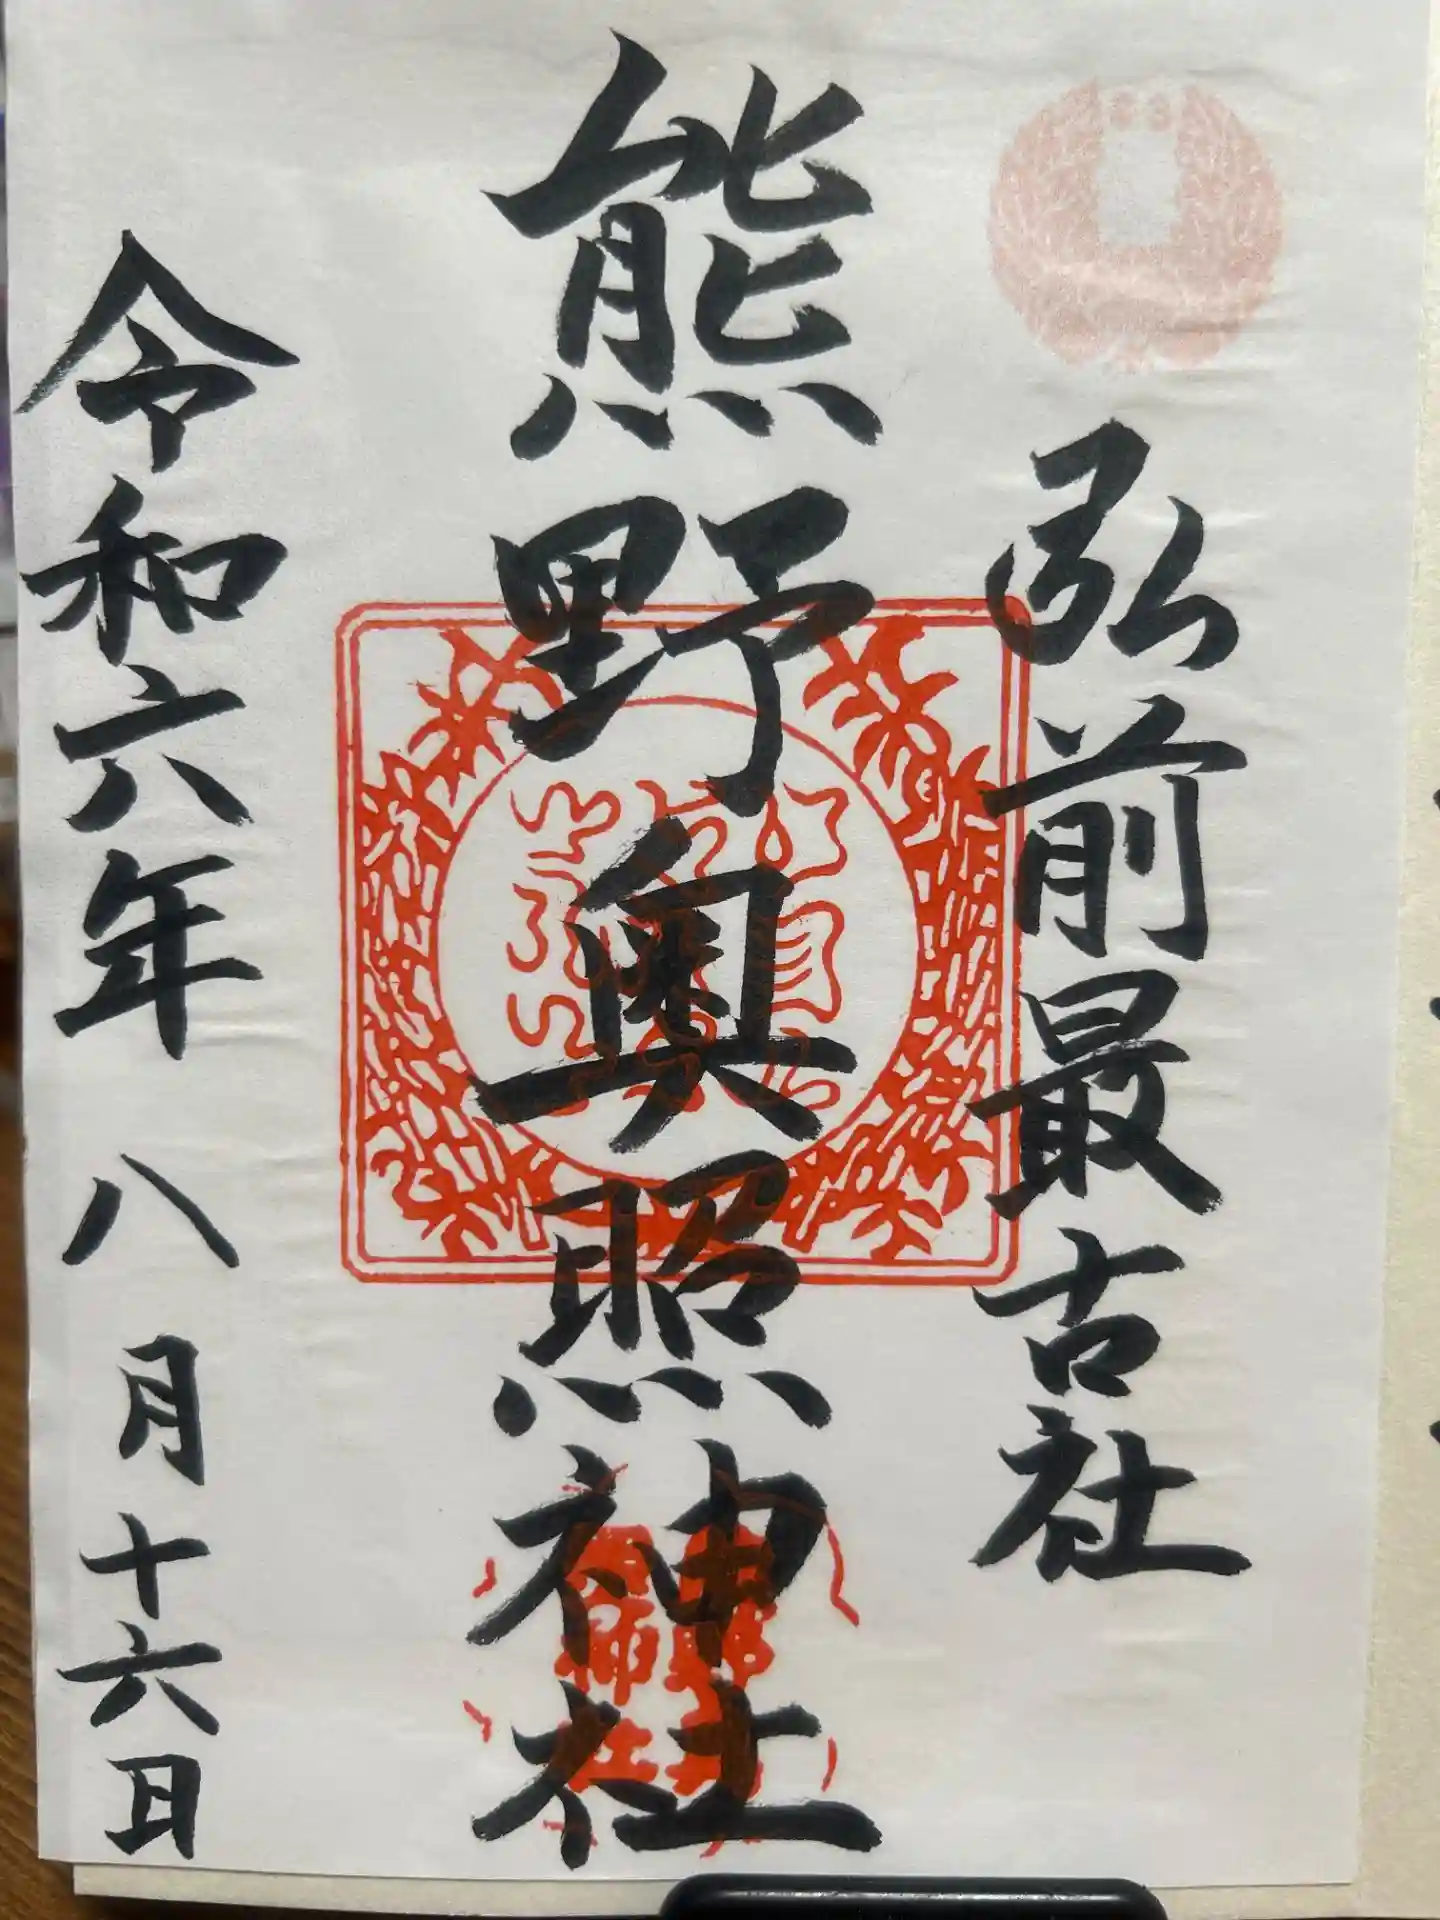 弘前最古社
熊野奥照神社
令和六年八月十六日